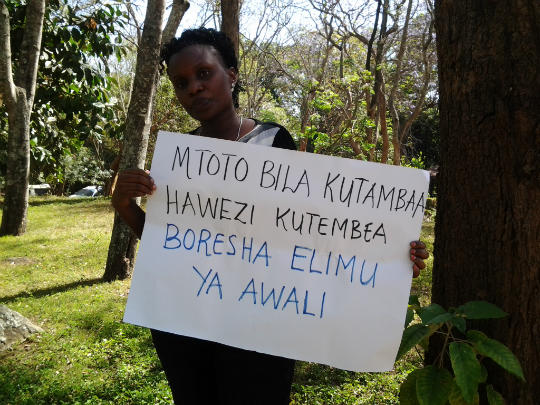 MTOTO BILA KUTAMBAA
HAWEZI KUTEMBEA
BORESHA ELIMU
YA AWALI